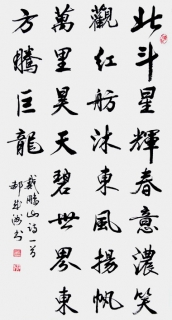 北斗星輝春意濃笑
觀紅舫沐東風揚帆
萬里昊天碧世界東
方騰巨龍
山诗一首
郝书